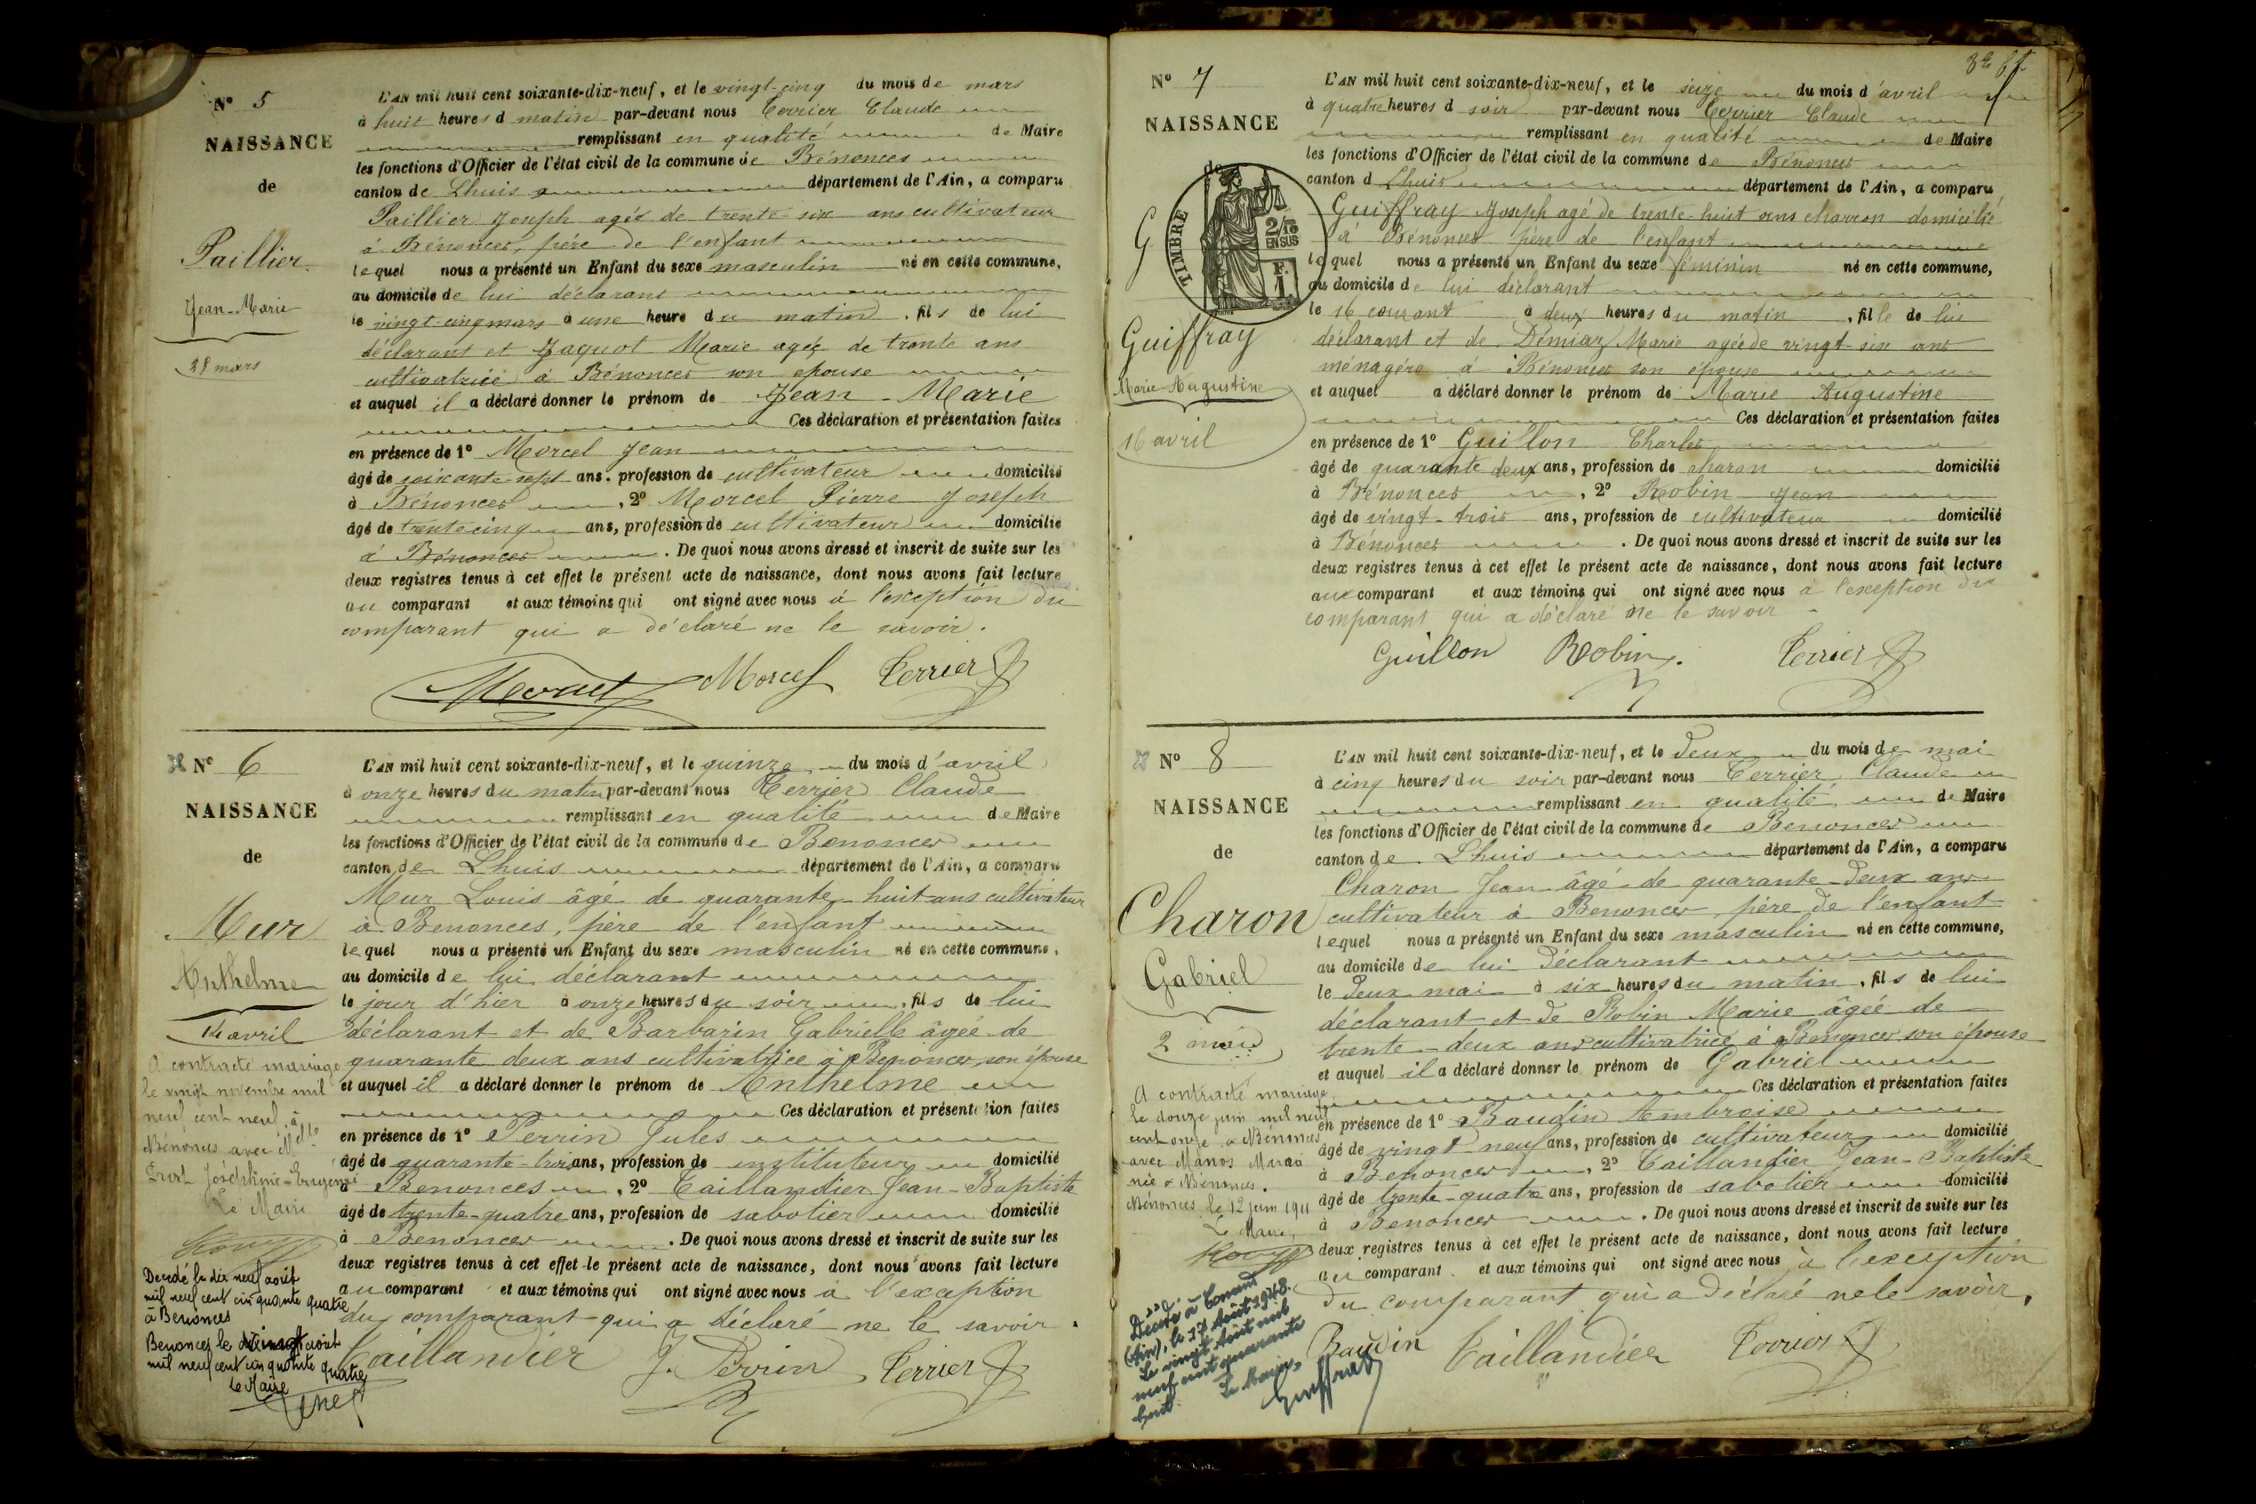 Nº 5
NAISSANCE
de
Paillier
Jean-Marie
28 mars
L'AN mil huit cent soixante-dix-neuf, et le vingt-cinq du mois de mars
à huit heures d matin par-devant nous Terrier Claude
remplissant en qualité de Maire
les fonctions d'Officier de l'état civil de la commune de Bénonces
canton de Lhuis département de l'Ain, a comparu
Paillier Joseph agé de trente-six ans cultivateur
à Bénonces, père de l'enfant
lequel nous a présenté un Enfant du sexe masculin né en cette commune,
au domicile de lui déclarant
le vingt-cinq mars à une heure du matin, fils de lui
déclarant et Jaquot Marie agée de trente ans
cultivatrice à Bénonces son epouse
et auquel il a déclaré donner le prénom de Jean-Marie
Ces déclaration et présentation faites
en présence de 1º Morcel Jean
âgé de soixante-sept ans, profession de cultivateur domicilié
à Bénonces, 2º Morcel Pierre Joseph
âgé de trente cinq ans, profession de cultivateur domicilié
à Bénonces. De quoi nous avons dressé et inscrit de suite sur les
deux registres tenus à cet effet le présent acte de naissance, dont nous avons fait lecture
au comparant et aux témoins qui ont signé avec nous à l'exception du
comparant qui a déclaré ne le savoir.
Morcel Terrier
Nº 6
NAISSANCE
de
Mur
Anthelme
14 avril
A contracté mariage
le vingt novembre mil
neuf cent neuf, à
Bénonces avec Mlle
Joséphine-Eugénie
Le Maire
Décédé le dix neuf août
mil neuf cent cinquante quatre
à Benonces
Benonces le vingt août
mil neuf cent cinquante quatre
Le Maire
L'AN mil huit cent soixante-dix-neuf, et le quinze du mois d'avril
à onze heures du matin par-devant nous Terrier Claude
remplissant en qualité de Maire
les fonctions d'Officier de l'état civil de la commune de Benonces
canton de Lhuis département de l'Ain, a comparu
Mur Louis âgé de quarante-huit ans cultivateur
à Benonces, père de l'enfant
lequel nous a présenté un Enfant du sexe masculin né en cette commune,
au domicile de lui déclarant
le jour d'hier à onze heures du soir, fils de lui
déclarant et de Barbarin Gabrielle âgée de
quarante deux ans cultivatrice à Benonces, son épouse
et auquel il a déclaré donner le prénom de Anthelme
Ces déclaration et présentation faites
en présence de 1º Perrin Jules
âgé de quarante-trois ans, profession de instituteur domicilié
à Benonces, 2º Taillandier Jean-Baptiste
âgé de trente-quatre ans, profession de sabotier domicilié
à Benonces. De quoi nous avons dressé et inscrit de suite sur les
deux registres tenus à cet effet le présent acte de naissance, dont nous avons fait lecture
au comparant et aux témoins qui ont signé avec nous à l'exception
du comparant qui a déclaré ne le savoir.
Taillandier J. Perrin Terrier
Nº 7
NAISSANCE
de
TIMBRE
2/10
EN SUS
F.
1
G
Guiffray
Marie Augustine
16 avril
L'AN mil huit cent soixante-dix-neuf, et le seize du mois d'avril
à quatre heures d soir par-devant nous Terrier Claude
remplissant en qualité de Maire
les fonctions d'Officier de l'état civil de la commune de Bénonces
canton d Lhuis département de l'Ain, a comparu
Guiffray Joseph agé de trente-huit ans charron domicilié
à Bénonces père de l'enfant
lequel nous a présenté un Enfant du sexe féminin né en cette commune,
au domicile de lui déclarant
le 16 courant à deux heures du matin, fille de lui
déclarant et de Démiaz Marie agée de vingt-six ans
ménagère à Bénonces son épouse
et auquel a déclaré donner le prénom de Marie Augustine
Ces déclaration et présentation faites
en présence de 1º Guillon Charles
âgé de quarante deux ans, profession de charon domicilié
à Bénonces, 2º Robin Jean
âgé de vingt-trois ans, profession de cultivateur domicilié
à Bénonces. De quoi nous avons dressé et inscrit de suite sur les
deux registres tenus à cet effet le présent acte de naissance, dont nous avons fait lecture
aux comparant et aux témoins qui ont signé avec nous à l'exception du
comparant qui a déclaré ne le savoir
Guillon Robin. Terrier
Nº 8
NAISSANCE
de
Charon
Gabriel
2 mai
A contracté mariage
le douze juin mil neuf
cent onze à Bénonces
avec Manos Maria
née à Bénonces.
Bénonces, le 12 juin 1911
Le Maire,
Décédé à
(Ain), le 17 Août 1948.
Le vingt Août mil
neuf cent quarante
huit. Le Maire,
Guiffray
L'AN mil huit cent soixante-dix-neuf, et le deux du mois de mai
à cinq heures du soir par-devant nous Terrier Claude
remplissant en qualité de Maire
les fonctions d'Officier de l'état civil de la commune de Benonces
canton de Lhuis département de l'Ain, a comparu
Charon Jean âgé de quarante-deux ans
cultivateur à Benonces, père de l'enfant
lequel nous a présenté un Enfant du sexe masculin né en cette commune,
au domicile de lui déclarant
le deux mai à six heures du matin, fils de lui
déclarant et de Robin Marie âgée de
trente-deux ans cultivatrice à Benonces son épouse
et auquel il a déclaré donner le prénom de Gabriel
Ces déclaration et présentation faites
en présence de 1º Baudin Ambroise
âgé de vingt neuf ans, profession de cultivateur domicilié
à Benonces, 2º Taillandier Jean-Baptiste
âgé de trente-quatre ans, profession de sabotier domicilié
à Benonces. De quoi nous avons dressé et inscrit de suite sur les
deux registres tenus à cet effet le présent acte de naissance, dont nous avons fait lecture
au comparant et aux témoins qui ont signé avec nous à l'exception
du comparant qui a déclaré ne le savoir.
Baudin Taillandier Terrier